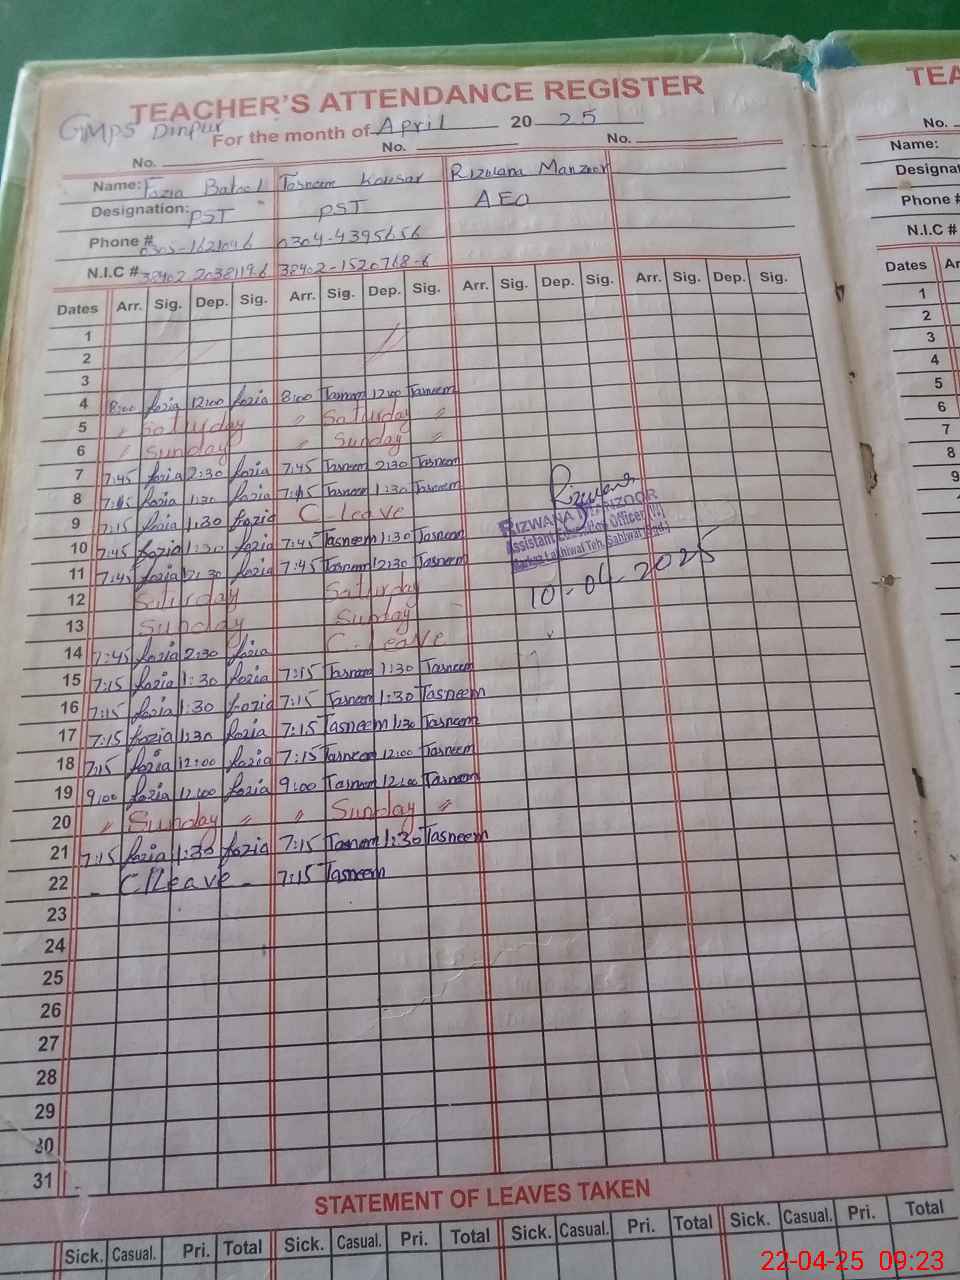 TEACHER'S ATTENDANCE REGISTER
GMPS Dinpur
For the month of April 2025
No. No. No.
Name: Fozia Batool Tasneem Kousar Rizwana Manzoor
Designation: PST PST AEO
Phone # 0304-4395656
N.I.C # 38402-1520768-6
Dates Arr. Sig. Dep. Sig. Arr. Sig. Dep. Sig. Arr. Sig. Dep. Sig. Arr. Sig. Dep. Sig.
1
2
3
4 8:00 fozia 12:00 fozia 8:00 Tasneem 12:00 Tasneem
5 " Saturday " Saturday "
6 " Sunday " Sunday "
7 7:45 fozia 2:30 fozia 7:45 Tasneem 2:30 Tasneem
8 fozia 1:30 fozia Tasneem 1:30 Tasneem
9 7:15 fozia 1:30 fozia C-leave
10 7:45 fozia 1:30 fozia 7:45 Tasneem 1:30 Tasneem
11 7:45 fozia 12:30 fozia 7:45 Tasneem 12:30 Tasneem
12 Saturday Saturday
13 Sunday Sunday
14 7:45 fozia 2:30 fozia C-leave
15 7:15 fozia 1:30 fozia 7:15 Tasneem 1:30 Tasneem
16 7:15 fozia 1:30 fozia 7:15 Tasneem 1:30 Tasneem
17 7:15 fozia 1:30 fozia 7:15 Tasneem 1:30 Tasneem
18 7:15 fozia 12:00 fozia 7:15 Tasneem 12:00 Tasneem
19 9:00 fozia 12:00 fozia 9:00 Tasneem 12:00 Tasneem
20 " Sunday " " Sunday "
21 7:15 fozia 1:30 fozia 7:15 Tasneem 1:30 Tasneem
22 - C/Leave - 7:15 Tasneem
23
24
25
26
27
28
29
30
31
Rizwana
RIZWANA MANZOOR
Assistant Education Officer (W)
Markaz Lakhiwal Teh. Sahiwal
10-04-2025
STATEMENT OF LEAVES TAKEN
Sick. Casual. Pri. Total Sick. Casual. Pri. Total Sick. Casual. Pri. Total Sick. Casual. Pri. Total
TEA
No.
Name:
Designat
Phone #
N.I.C #
Dates Ar
1
2
3
4
5
6
7
8
9
22-04-25 09:23